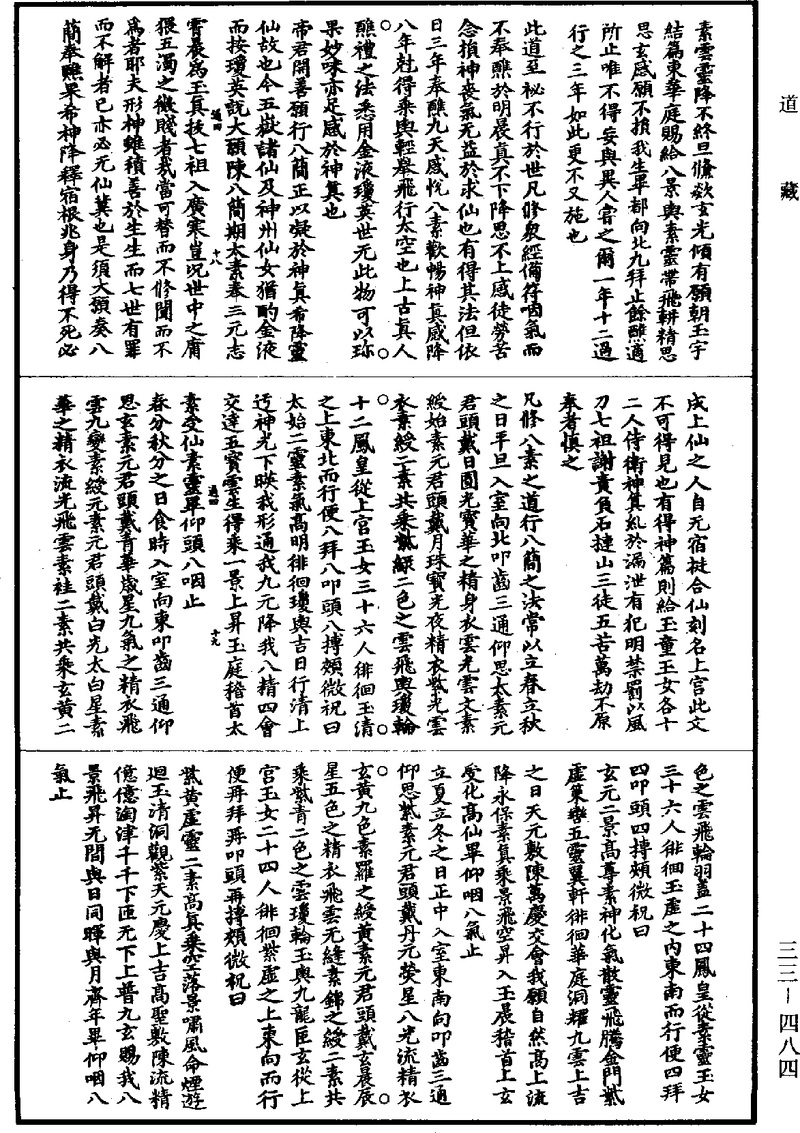 道藏
素雲靈降不終旦儵歘玄光傾有願朝玉宇
結篇東華庭賜給八景輿素靈帶飛軿精思
思玄感願不損我生畢都向北九拜止餘醮適
所止唯不得妄與異人嘗之爾一年十二過
行之三年如此更不又施也
此道至祕不行於世凡修衆經備符咽氣而
不奉醮於明晨真不下降思不上感徒勞苦
念損神喪氣无益於求仙也有得其法但依
日三年奉醮九天感悅八素歡暢神真感降
八年尅得乘輿輕舉飛行太空也上古真人
醮禮之法悉用金液瓊英世无此物可以珎
果妙味亦足感於神真也
帝君開善願行八簡正以凝於神真希降靈
仙故也今五嶽諸仙及神州仙女猶酌金液
而按瓊英說大願陳八簡期太素奉三元志
霄晨爲玉真拔七祖入廣寒豈況世中之庸
猥五濁之微賤者哉當可替而不修聞而不
爲者耶夫形神雖積善於生生而七世有罪
而不解者已亦必无仙冀也是須大願奏八
簡奉醮果希神降釋宿根兆身乃得不死必
成上仙之人自无宿挺合仙刻名上宮此文
不可得見也有得神篇則給玉童玉女各十
二人侍衛神真糺於漏泄有犯明禁罰以風
刀七祖謝責負石撻山三徒五苦萬劫不原
奉者慎之
凡修八素之道行八簡之法常以立春立秋
之日平旦入室向北叩齒三通仰思太素元
君頭戴日圓光寶華之精身衣雲光雲文素
綬始素元君頭戴月珠寶光夜精衣紫光雲
衣素綬二素共乘紫綠二色之雲飛輿瓊輪
十二鳳皇從上宮玉女三十六人徘徊玉清
之上東北而行便八拜八叩頭八搏頰微祝曰
太始二靈素氣高明徘徊瓊輿吉日行清上
迂神光下映我形通我九元降我八精四會
交達五寶雲生得乘一景上昇玉庭稽首太
素受仙素靈畢仰頭八咽止
春分秋分之日食時入室向東叩齒三通仰
思玄素元君頭戴青華歲星九氣之精衣飛
雲九變素綬元素元君頭戴白光太白星素
華之精衣流光飛雲素袿二素共乘玄黃二
色之雲飛輪羽蓋二十四鳳皇從素靈玉女
三十六人徘徊玉虛之內東南而行便四拜
四叩頭四搏頰微祝曰
玄元二景高尊素神化氣散靈飛騰金門紫
虛策轡五靈翼軒徘徊華庭洞耀九雲上吉
之日天元敷陳萬慶交會我願自然高上流
降永保素真乘景飛空昇入玉晨稽首上玄
受化高仙畢仰咽八氣止
立夏立冬之日正中入室東南向叩齒三通
仰思紫素元君頭戴丹元熒星八光流精衣
玄黃九色素羅之綬黃素元君頭戴玄晨辰
星五色之精衣飛雲无縫素錦之綬二素共
乘紫青二色之雲瓊輪玉輿九龍匠玄從上
宮玉女二十四人徘徊紫虛之上東向而行
便再拜再叩頭再搏頰微祝曰
紫黃虛靈二素高真乘空落景嘯風命煙遊
迴玉清洞觀紫天元慶上吉高聖敷陳流精
億億淘津千千下匝无下上普九玄賜我八
景飛昇无間與日同暉與月齊年畢仰咽八
氣止
三三－四八四